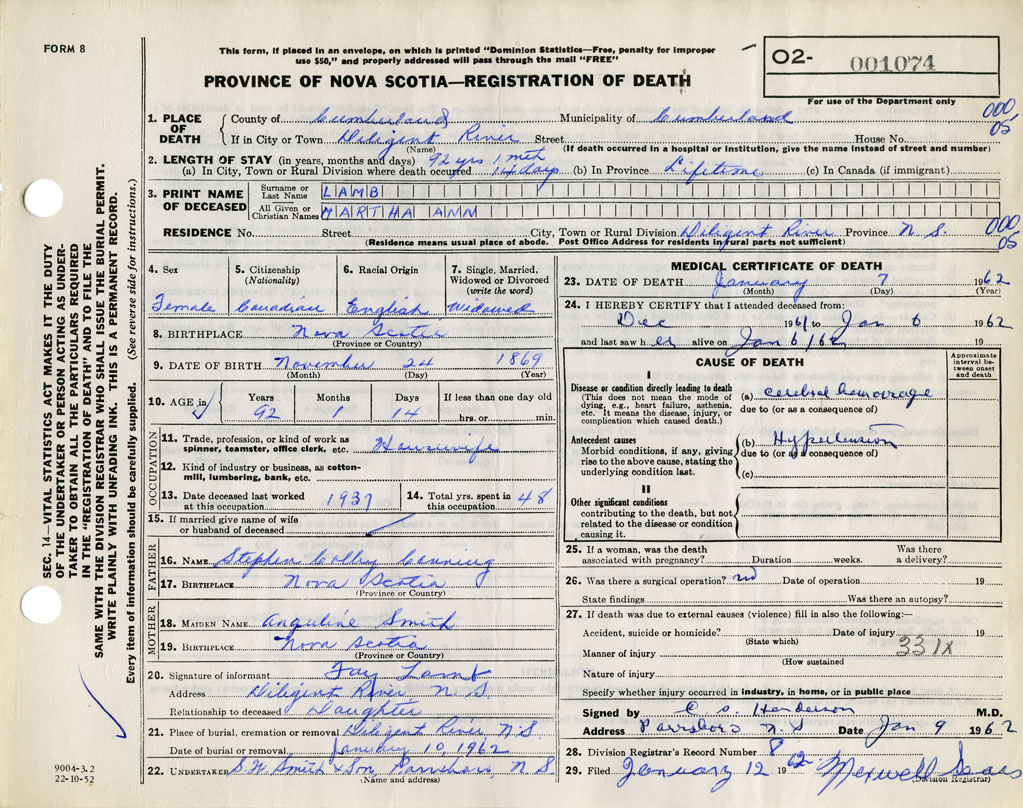 FORM 8
This form, if placed in an envelope, on which is printed "Dominion Statistics—Free, penalty for improper
use $50," and properly addressed will pass through the mail "FREE"
PROVINCE OF NOVA SCOTIA—REGISTRATION OF DEATH
O2- 001074
For use of the Department only
SEC. 14—VITAL STATISTICS ACT MAKES IT THE DUTY
OF THE UNDERTAKER OR PERSON ACTING AS UNDER-
TAKER TO OBTAIN ALL THE PARTICULARS REQUIRED
IN THE "REGISTRATION OF DEATH" AND TO FILE THE
SAME WITH THE DIVISION REGISTRAR WHO SHALL ISSUE THE BURIAL PERMIT.
WRITE PLAINLY WITH UNFADING INK. THIS IS A PERMANENT RECORD.
Every item of information should be carefully supplied. (See reverse side for instructions.)
1. PLACE OF DEATH
County of Cumberland Municipality of Cumberland 000,
05
If in City or Town Diligent River Street House No.
(Name) (If death occurred in a hospital or institution, give the name instead of street and number)
2. LENGTH OF STAY (in years, months and days) 92 yrs 1 mth
(a) In City, Town or Rural Division where death occurred 14 days (b) In Province Lifetime (c) In Canada (if immigrant)
3. PRINT NAME OF DECEASED
Surname or Last Name LAMB
All Given or Christian Names MARTHA ANN
RESIDENCE No. Street City, Town or Rural Division Diligent River Province N. S. 000,
05
(Residence means usual place of abode. Post Office Address for residents in rural parts not sufficient)
4. Sex
Female
5. Citizenship
(Nationality)
Canadian
6. Racial Origin
English
7. Single, Married,
Widowed or Divorced
(write the word)
Widowed
8. BIRTHPLACE Nova Scotia
(Province or Country)
9. DATE OF BIRTH November 24 1869
(Month) (Day) (Year)
10. AGE in Years Months Days If less than one day old
92 1 14 hrs. or min.
OCCUPATION
11. Trade, profession, or kind of work as
spinner, teamster, office clerk, etc. Housewife
12. Kind of industry or business, as cotton-
mill, lumbering, bank, etc.
13. Date deceased last worked
at this occupation 1937
14. Total yrs. spent in
this occupation 48
15. If married give name of wife
or husband of deceased
FATHER
16. NAME Stephen Colby Canning
17. BIRTHPLACE Nova Scotia
(Province or Country)
MOTHER
18. MAIDEN NAME Anguline Smith
19. BIRTHPLACE Nova Scotia
(Province or Country)
20. Signature of informant Fay Lamb
Address Diligent River N. S
Relationship to deceased Daughter
21. Place of burial, cremation or removal Diligent River N.S
Date of burial or removal January 10, 1962
22. UNDERTAKER S.W. Smith & Son, Parrsboro, N S
(Name and address)
9004-3.2
22-10-52
MEDICAL CERTIFICATE OF DEATH
23. DATE OF DEATH January 7 1962
(Month) (Day) (Year)
24. I HEREBY CERTIFY that I attended deceased from:
Dec 1961 to Jan 6 1962
and last saw her alive on Jan 6/62 19
CAUSE OF DEATH
Approximate
interval be-
tween onset
and death
I
Disease or condition directly leading to death
(This does not mean the mode of
dying, e.g., heart failure, asthenia,
etc. It means the disease, injury, or
complication which caused death.)
(a) cerebral hemorrage
due to (or as a consequence of)
Antecedent causes
Morbid conditions, if any, giving
rise to the above cause, stating the
underlying condition last.
(b) Hypertension
due to (or as a consequence of)
(c)
II
Other significant conditions
contributing to the death, but not
related to the disease or condition
causing it.
25. If a woman, was the death
associated with pregnancy? Duration weeks. Was there
a delivery?
26. Was there a surgical operation? no Date of operation 19
State findings Was there an autopsy?
27. If death was due to external causes (violence) fill in also the following:—
Accident, suicide or homicide? Date of injury 19
(State which)
Manner of injury 331X
(How sustained
Nature of injury
Specify whether injury occurred in industry, in home, or in public place
Signed by C. S. Henderson M.D.
Address Parrsboro N.S Date Jan 9 1962
28. Division Registrar's Record Number 8
29. Filed January 12 1962 Maxwell
(Division Registrar)